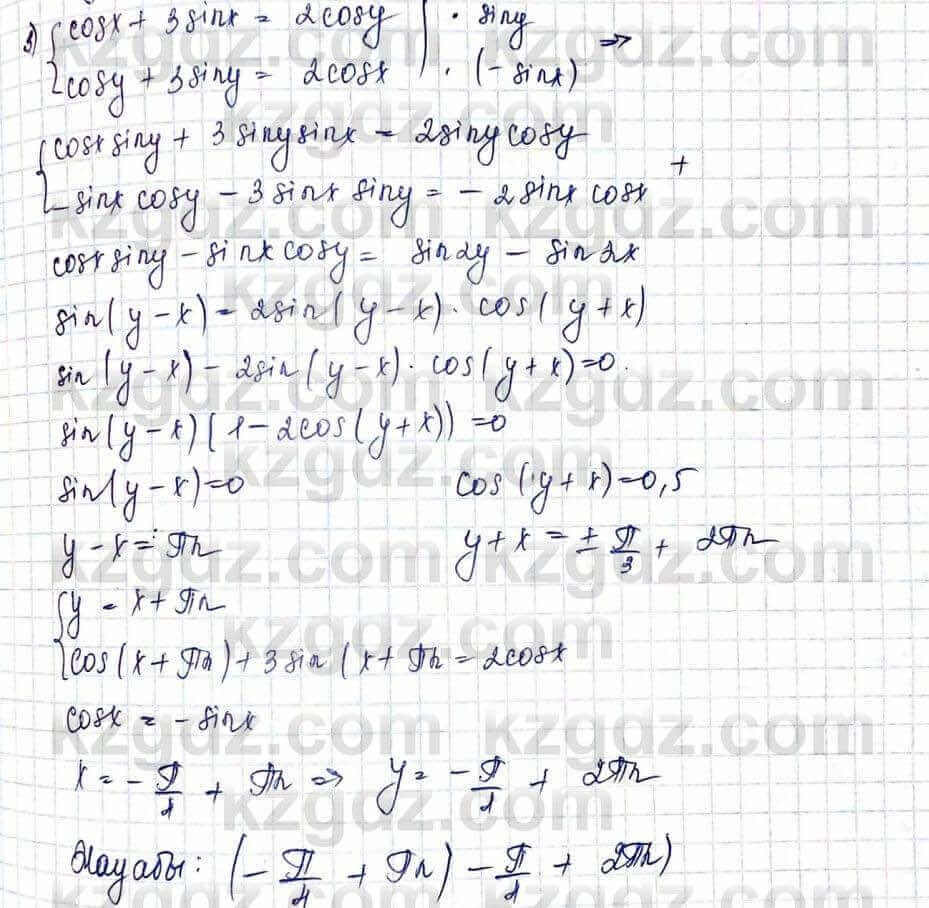 3) { cosx + 3sinx = 2cosy | · siny ⇒
{ cosy + 3siny = 2cosx | · (-sinx)
{ cosx siny + 3 siny sinx = 2siny cosy
{ - sinx cosy - 3 sinx siny = - 2 sinx cosx +
cosx siny - sinx cosy = sin2y - sin2x
sin(y-x) = 2sin(y-x) · cos(y+x)
sin(y-x) - 2sin(y-x) · cos(y+x) = 0.
sin(y-x)(1-2cos(y+x)) = 0
sin(y-x)=0 cos(y+x)=0,5
y-x = πn y+x = ± π/3 + 2πn
{ y = x+πn
{ cos(x+πn)+3sin(x+πn = 2cosx
cosx = -sinx
x = - π/4 + πn ⇒ y = - π/4 + 2πn
Жауабы: (- π/4 + πn) - π/4 + 2πn)
kzgdz.com